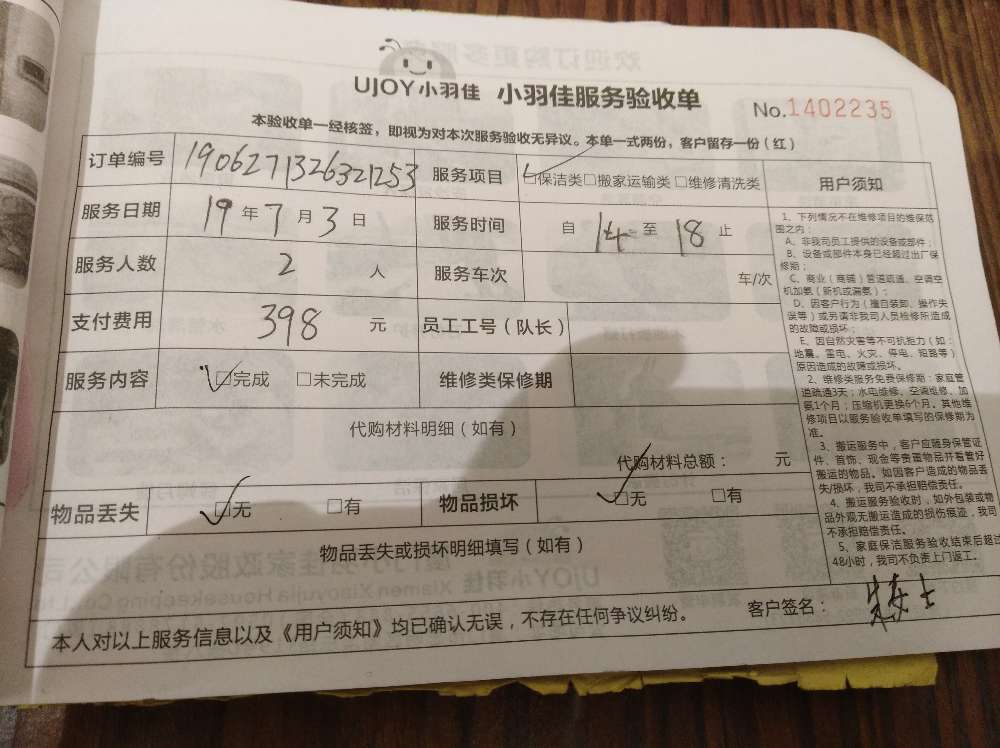 UJOY小羽佳 小羽佳服务验收单
No.1402235
本验收单一经核签，即视为对本次服务验收无异议。本单一式两份，客户留存一份（红）
订单编号 1906271326321253 服务项目 □保洁类□搬家运输类□维修清洗类 用户须知
服务日期 19年7月3日 服务时间 自14至18止
服务人数 2人 服务车次 车/次
支付费用 398元 员工工号（队长）
服务内容 □完成 □未完成 维修类保修期
代购材料明细（如有）
代购材料总额： 元
物品丢失 □无 □有 物品损坏 □无 □有
物品丢失或损坏明细填写（如有）
1、下列情况不在维修项目的维保范
围之内：
A、非我司员工提供的设备或部件；
B、设备或部件本身已经超过出厂保
修期；
C、商业（商铺）管道疏通、空调空
机加氨（新机或漏氨）；
D、因客户行为（擅自装卸、操作失
误等）或另请非我司人员检修所造成
的故障或损坏；
E、因自然灾害等不可抗拒力（如：
地震、雷电、火灾、停电、短路等）
原因造成的故障或损坏。
2、维修类服务免费保修期：家庭管
道疏通3天；水电维修、空调维修、加
氨1个月；压缩机更换6个月。其他维
修项目以服务验收单填写的保修期为
准。
3、搬运服务中，客户应随身保管证
件、首饰、现金等贵重物品并看管好
搬运的物品。如因客户造成的物品丢
失/损坏，我司不承担赔偿责任。
4、搬运服务验收时，如外包装或物
品外观无搬运造成的损伤痕迹，我司
不承担赔偿责任。
5、家庭保洁服务验收结束后超过
48小时，我司不负责上门返工。
客户签名：
本人对以上服务信息以及《用户须知》均已确认无误，不存在任何争议纠纷。